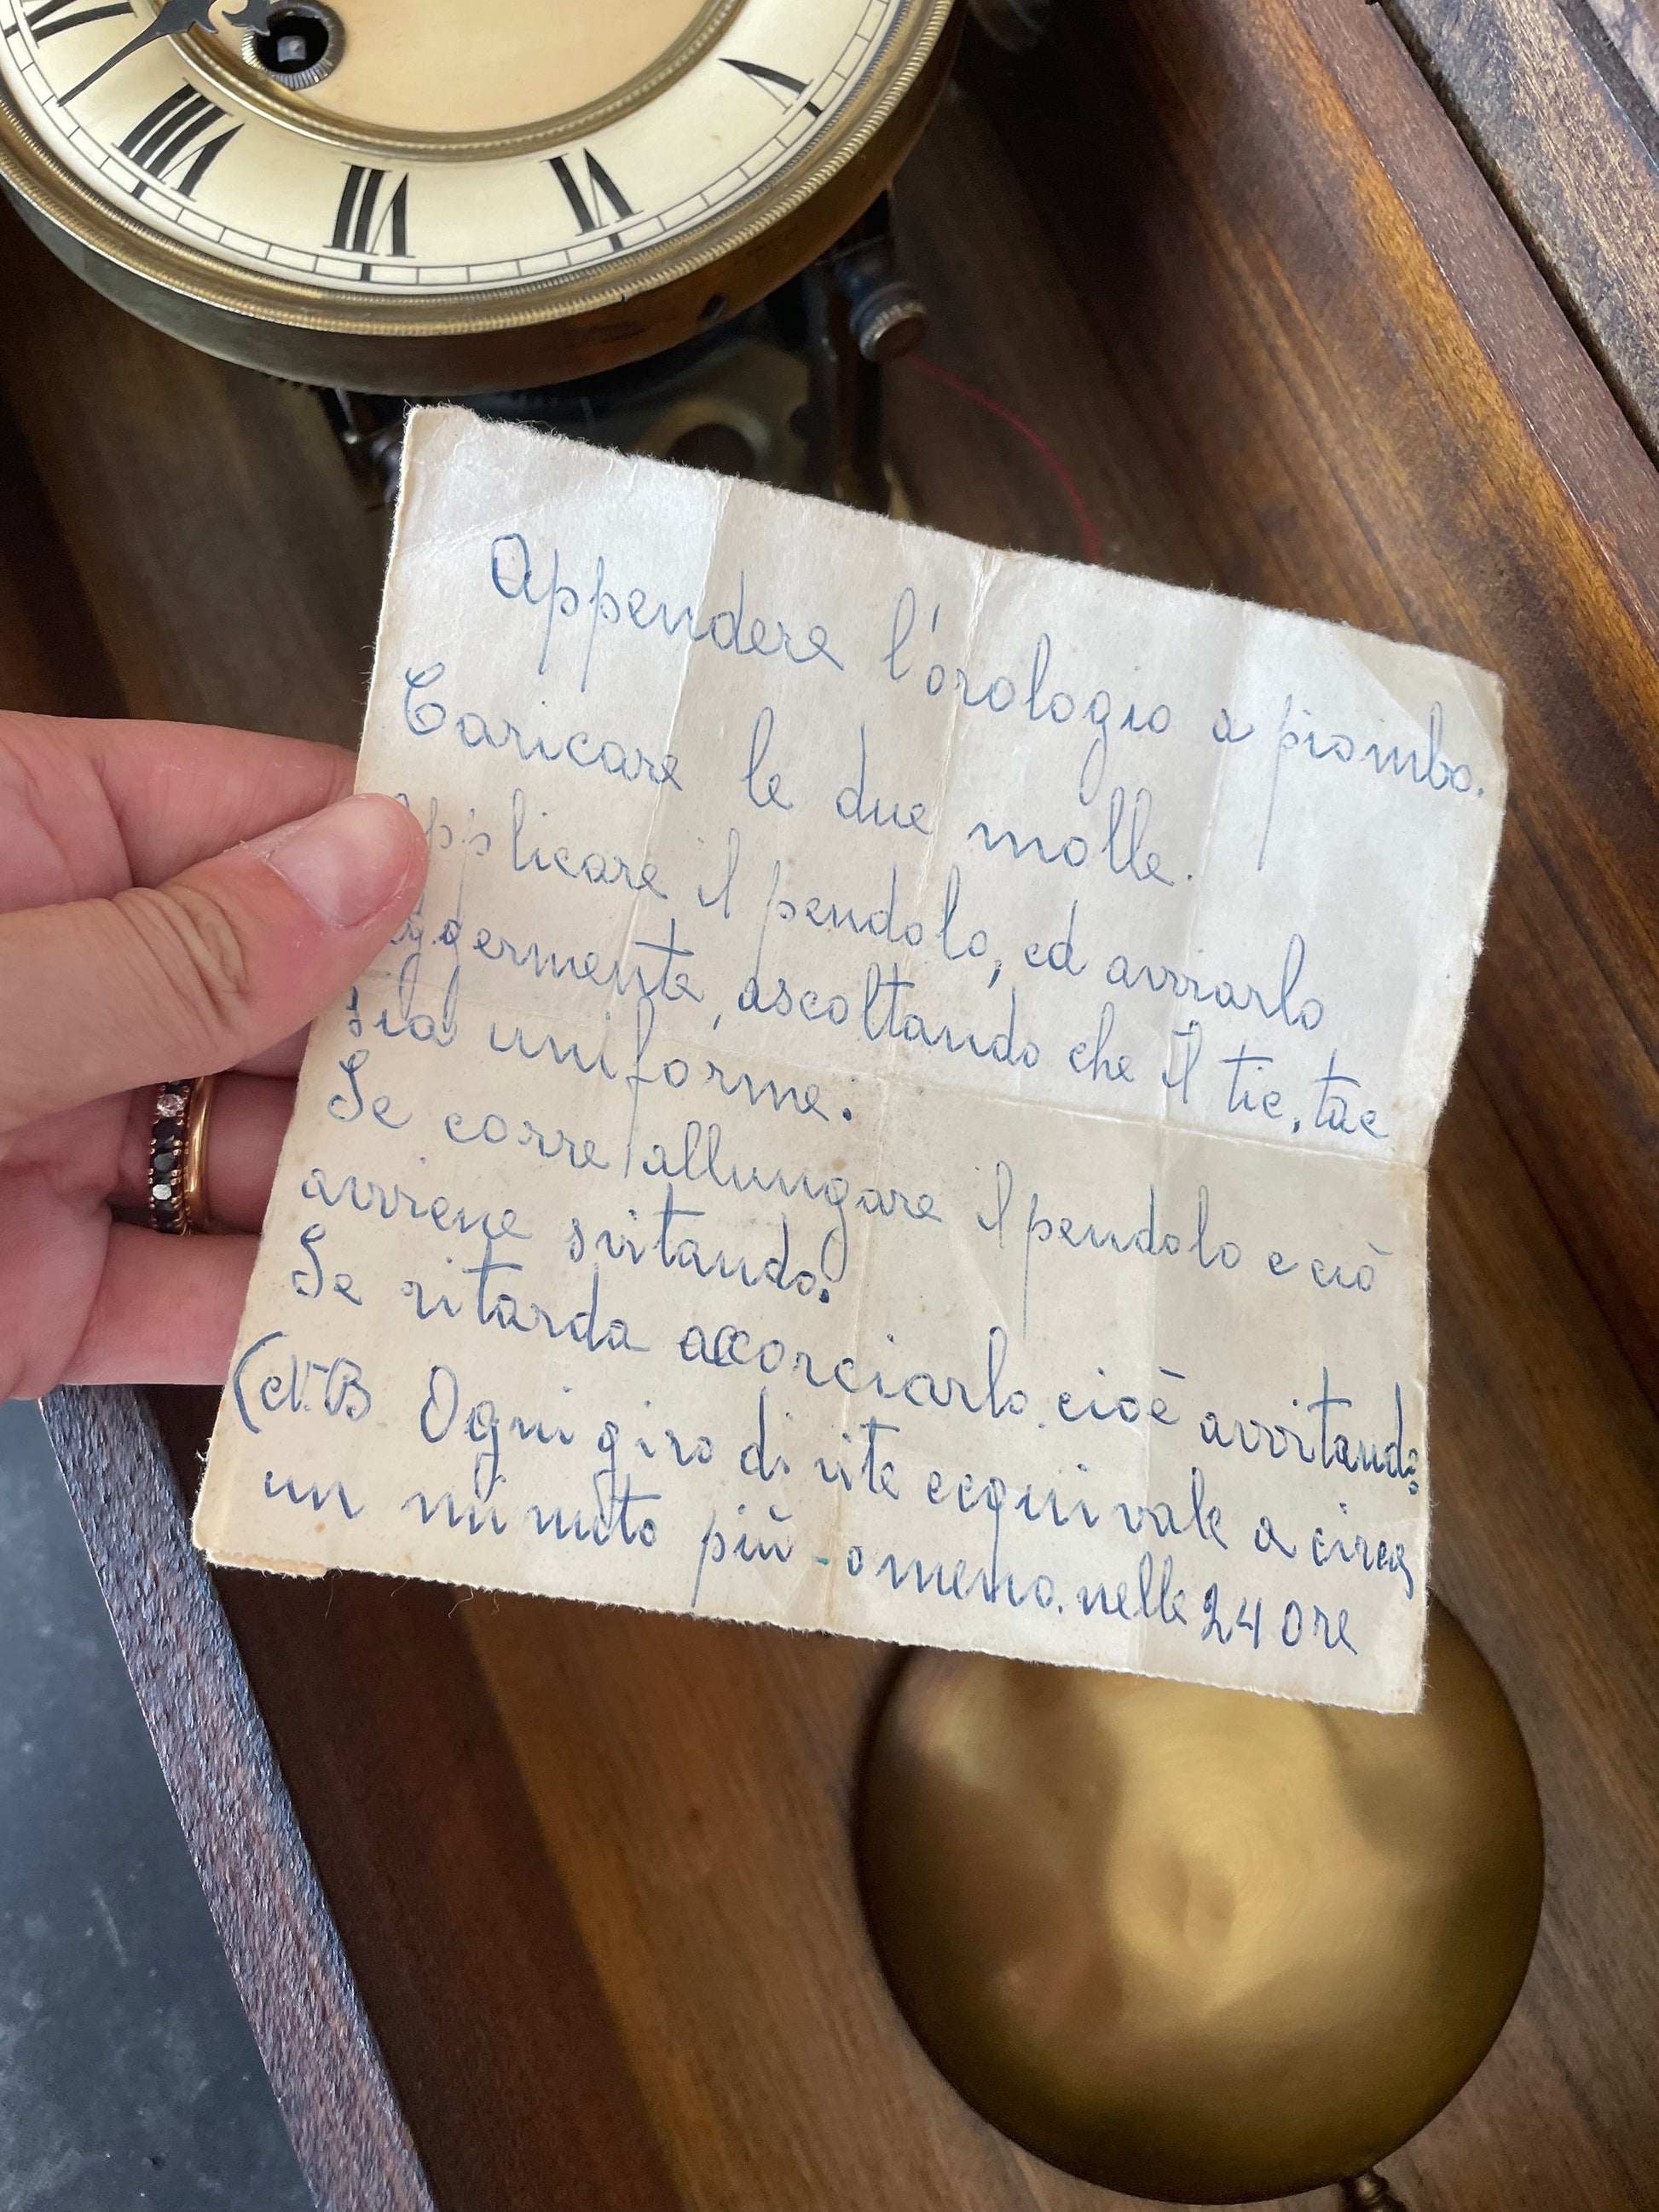 VIII VII VI V
Appendere l'orologio a piombo.
Caricare le due molle.
Applicare il pendolo, ed avviarlo
leggermente, ascoltando che il tic, tac
sia uniforme.
Se corre allungare il pendolo e ciò
avviene svitando.
Se ritarda accorciarlo. cioè avvitando
(N.B Ogni giro di vite eequivale a circa
un minuto più o meno. nelle 24 ore